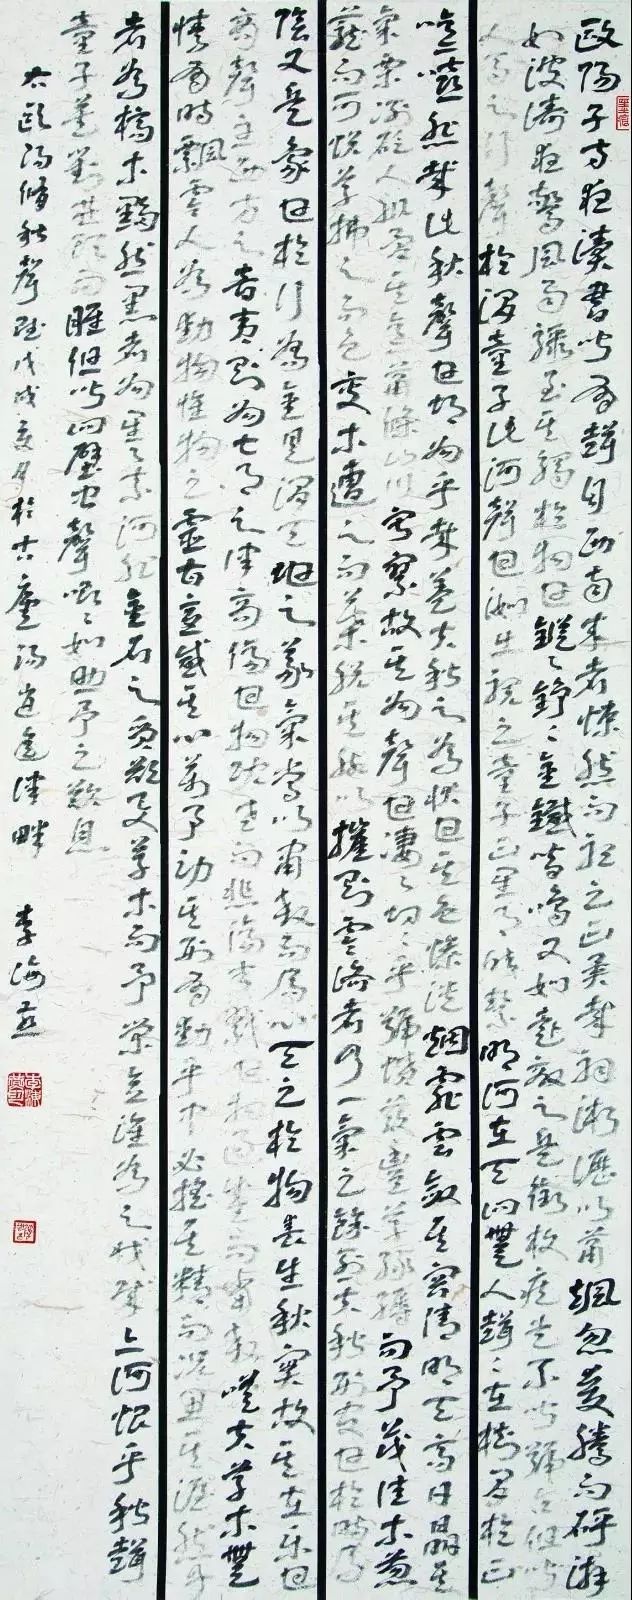 歐陽子方夜讀書聞有聲自西南來者悚然而聽之曰異哉初淅瀝以蕭颯忽奔騰而砰湃
如波濤夜驚風雨驟至其觸於物也鏦鏦錚錚金鐵皆鳴又如赴敵之兵銜枚疾走不聞號令但聞
人馬之行聲於謂童子此何聲也汝出視之童子曰星月皎潔明河在天四無人聲聲在樹間於曰
噫嘻悲哉此秋聲也胡為乎哉蓋夫秋之為狀也其色慘淡烟霏雲斂其容清明天高日晶其
氣栗冽砭人肌骨其意蕭條山川寂寥故其為聲也淒淒切切乎號憤發豐草綠縟而爭茂佳木葱
蘢而可悅草拂之而色變木遭之而葉脫其所以摧敗零落者乃一氣之餘烈夫秋刑官也於時為
陰又兵象也於行為金是謂天地之義氣常以肅殺而為心天之於物春生秋實故其在樂也
商聲主西方之音夷則為七月之律商傷也物既老而悲傷夷戮也物過盛而當殺嗟夫草木無
情有時飄零人為動物惟物之靈百憂感其心萬事勞其形有動乎中必搖其精而況思其渥然丹
者為槁木黟然黑者為星星奈何非金石之質欲與草木而爭榮念誰為之戕賊亦何恨乎秋聲
童子莫對垂頭而睡但聞四壁蟲聲唧唧如助予之歎息
右歐陽修秋聲賦戊戌夏月於古廬陽逍遙津畔 李海燕